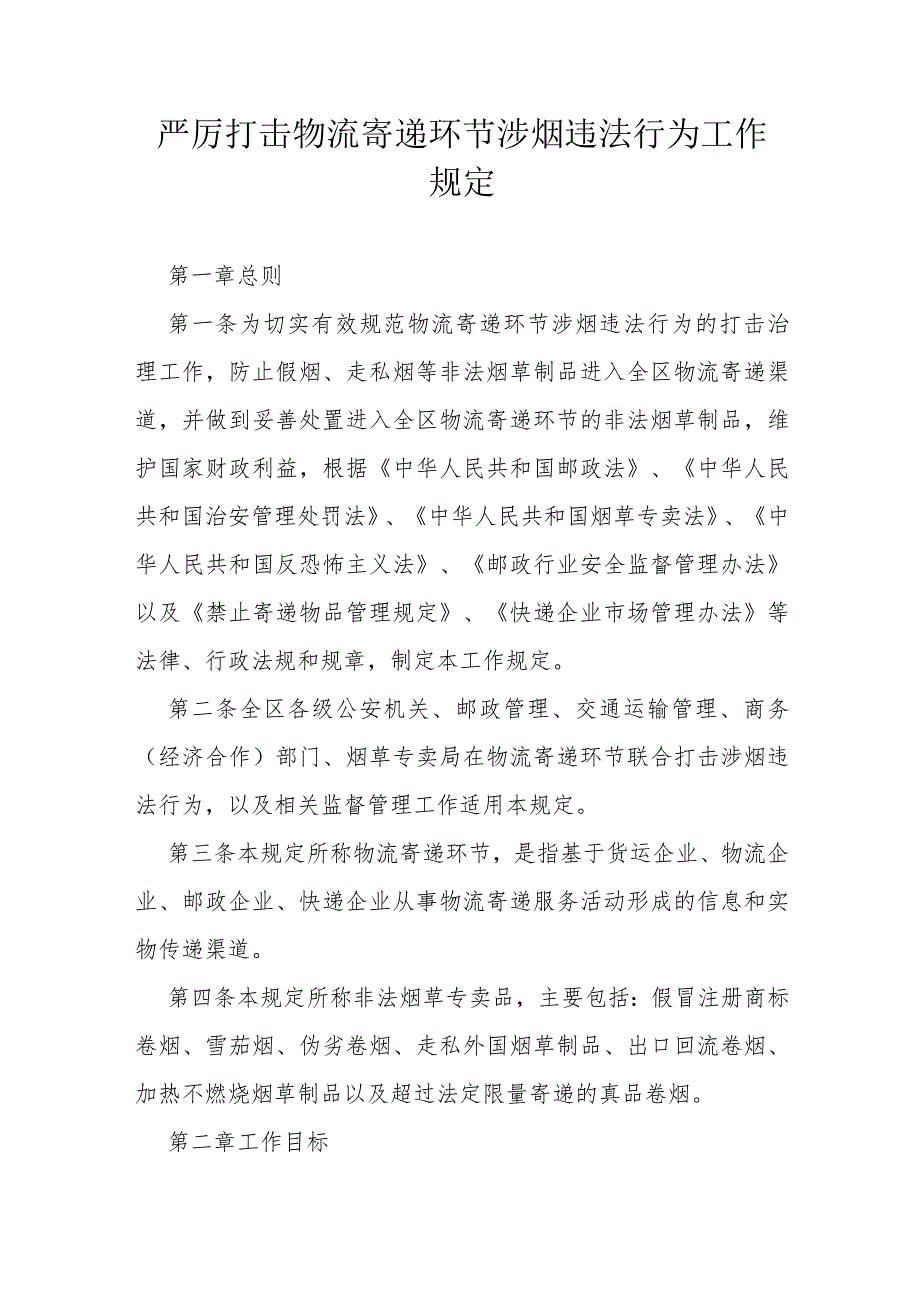 严厉打击物流寄递环节涉烟违法行为工作
规定
第一章总则
第一条为切实有效规范物流寄递环节涉烟违法行为的打击治
理工作，防止假烟、走私烟等非法烟草制品进入全区物流寄递渠
道，并做到妥善处置进入全区物流寄递环节的非法烟草制品，维
护国家财政利益，根据《中华人民共和国邮政法》、《中华人民
共和国治安管理处罚法》、《中华人民共和国烟草专卖法》、《中
华人民共和国反恐怖主义法》、《邮政行业安全监督管理办法》
以及《禁止寄递物品管理规定》、《快递企业市场管理办法》等
法律、行政法规和规章，制定本工作规定。
第二条全区各级公安机关、邮政管理、交通运输管理、商务
（经济合作）部门、烟草专卖局在物流寄递环节联合打击涉烟违
法行为，以及相关监督管理工作适用本规定。
第三条本规定所称物流寄递环节，是指基于货运企业、物流企
业、邮政企业、快递企业从事物流寄递服务活动形成的信息和实
物传递渠道。
第四条本规定所称非法烟草专卖品，主要包括：假冒注册商标
卷烟、雪茄烟、伪劣卷烟、走私外国烟草制品、出口回流卷烟、
加热不燃烧烟草制品以及超过法定限量寄递的真品卷烟。
第二章工作目标